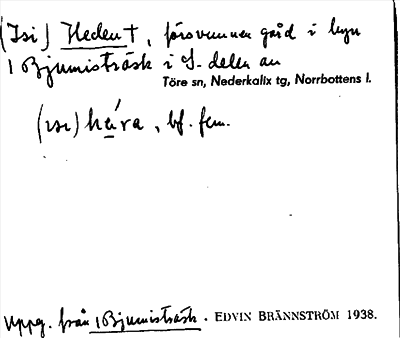 (Isi) Heden †, försvunnen gård i byn
1 Bjumisträsk i S. delen av
Töre sn, Nederkalix tg, Norrbottens l.
(ısı) , bf. fem.
Uppg. från 1 Bjumisträsk. EDVIN BRÄNNSTRÖM 1938.